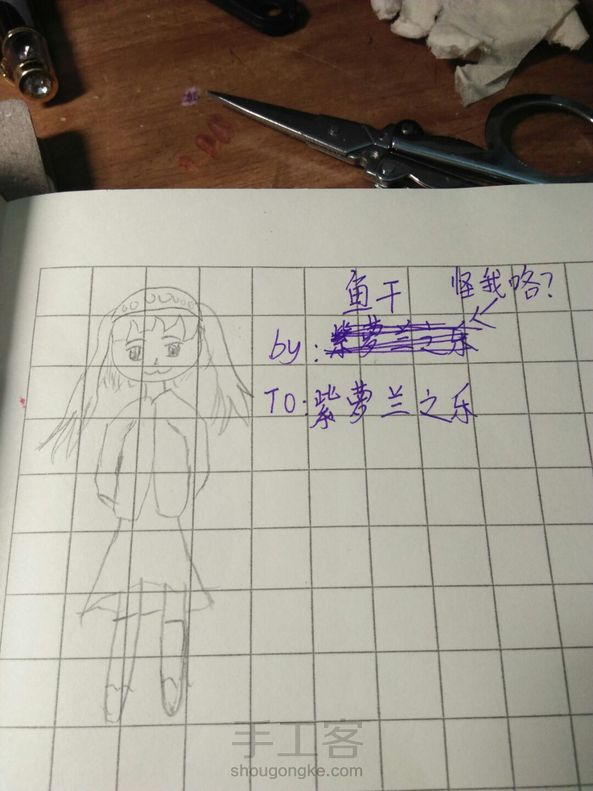 鱼干 怪我咯?
by:紫萝兰之乐
To:紫萝兰之乐
手工客
shougongke.com